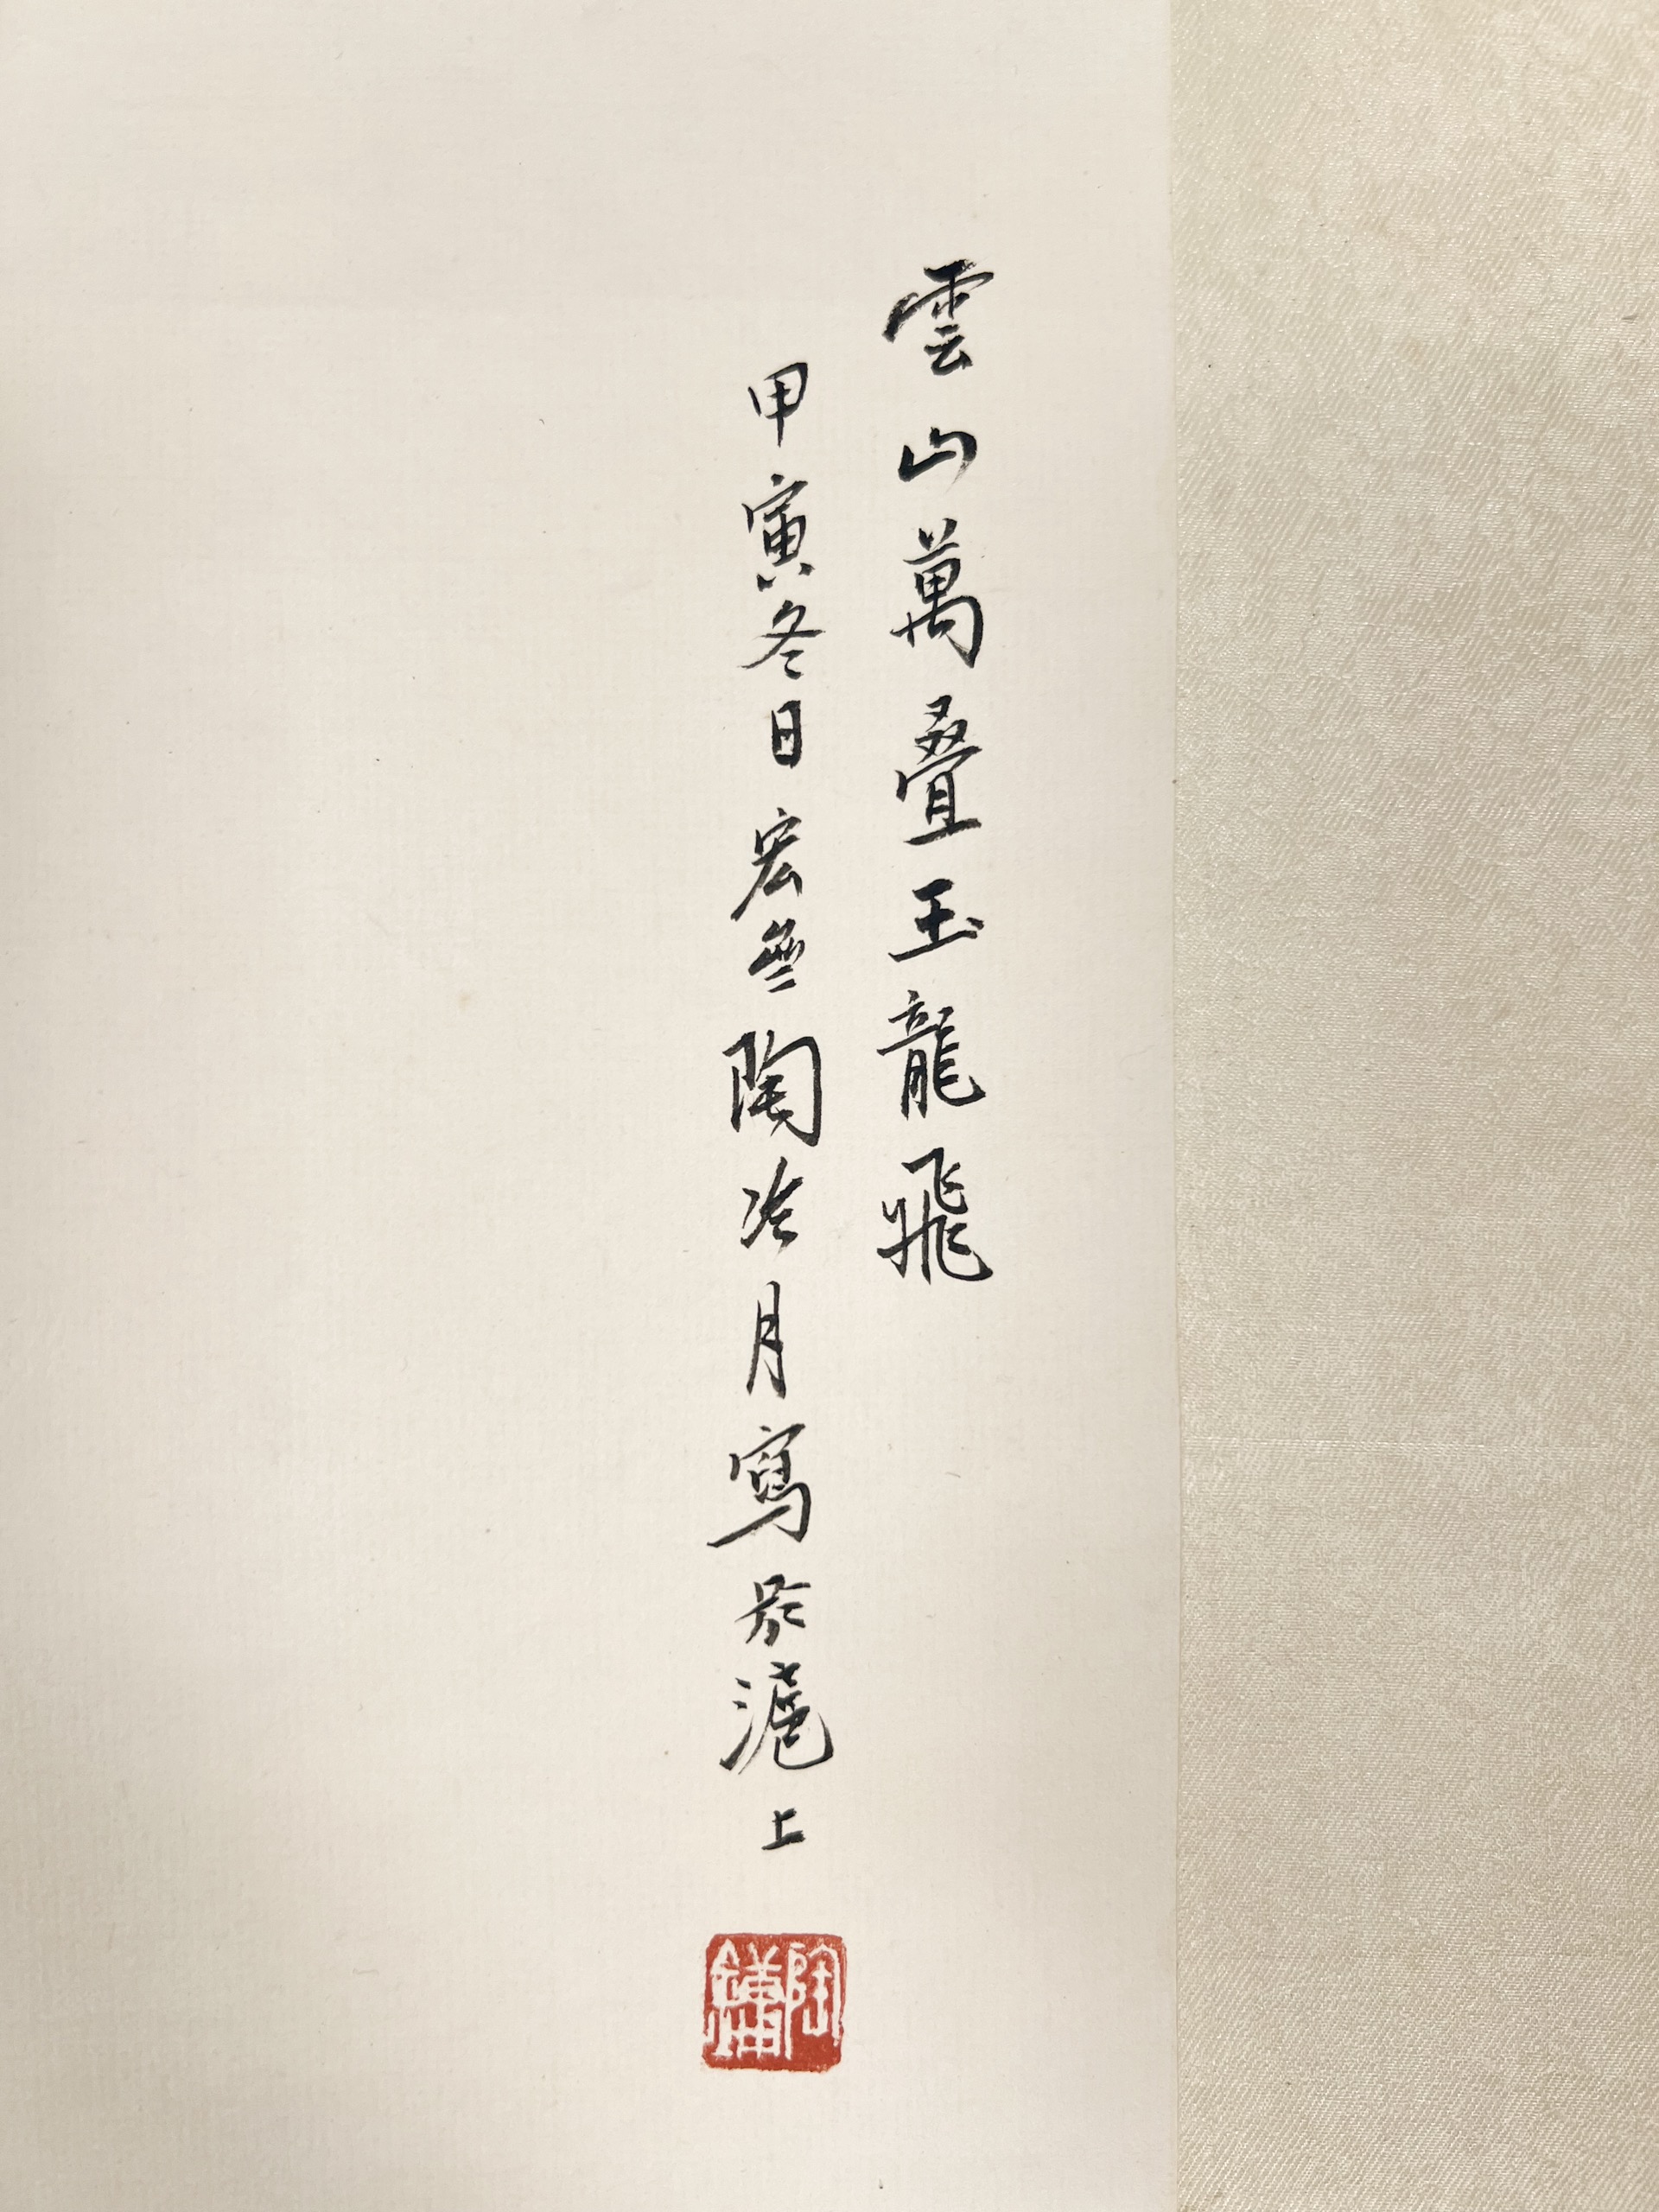 雲山萬叠玉龍飛
甲寅冬日宏亝陶冷月寫於滬上
陶鏞